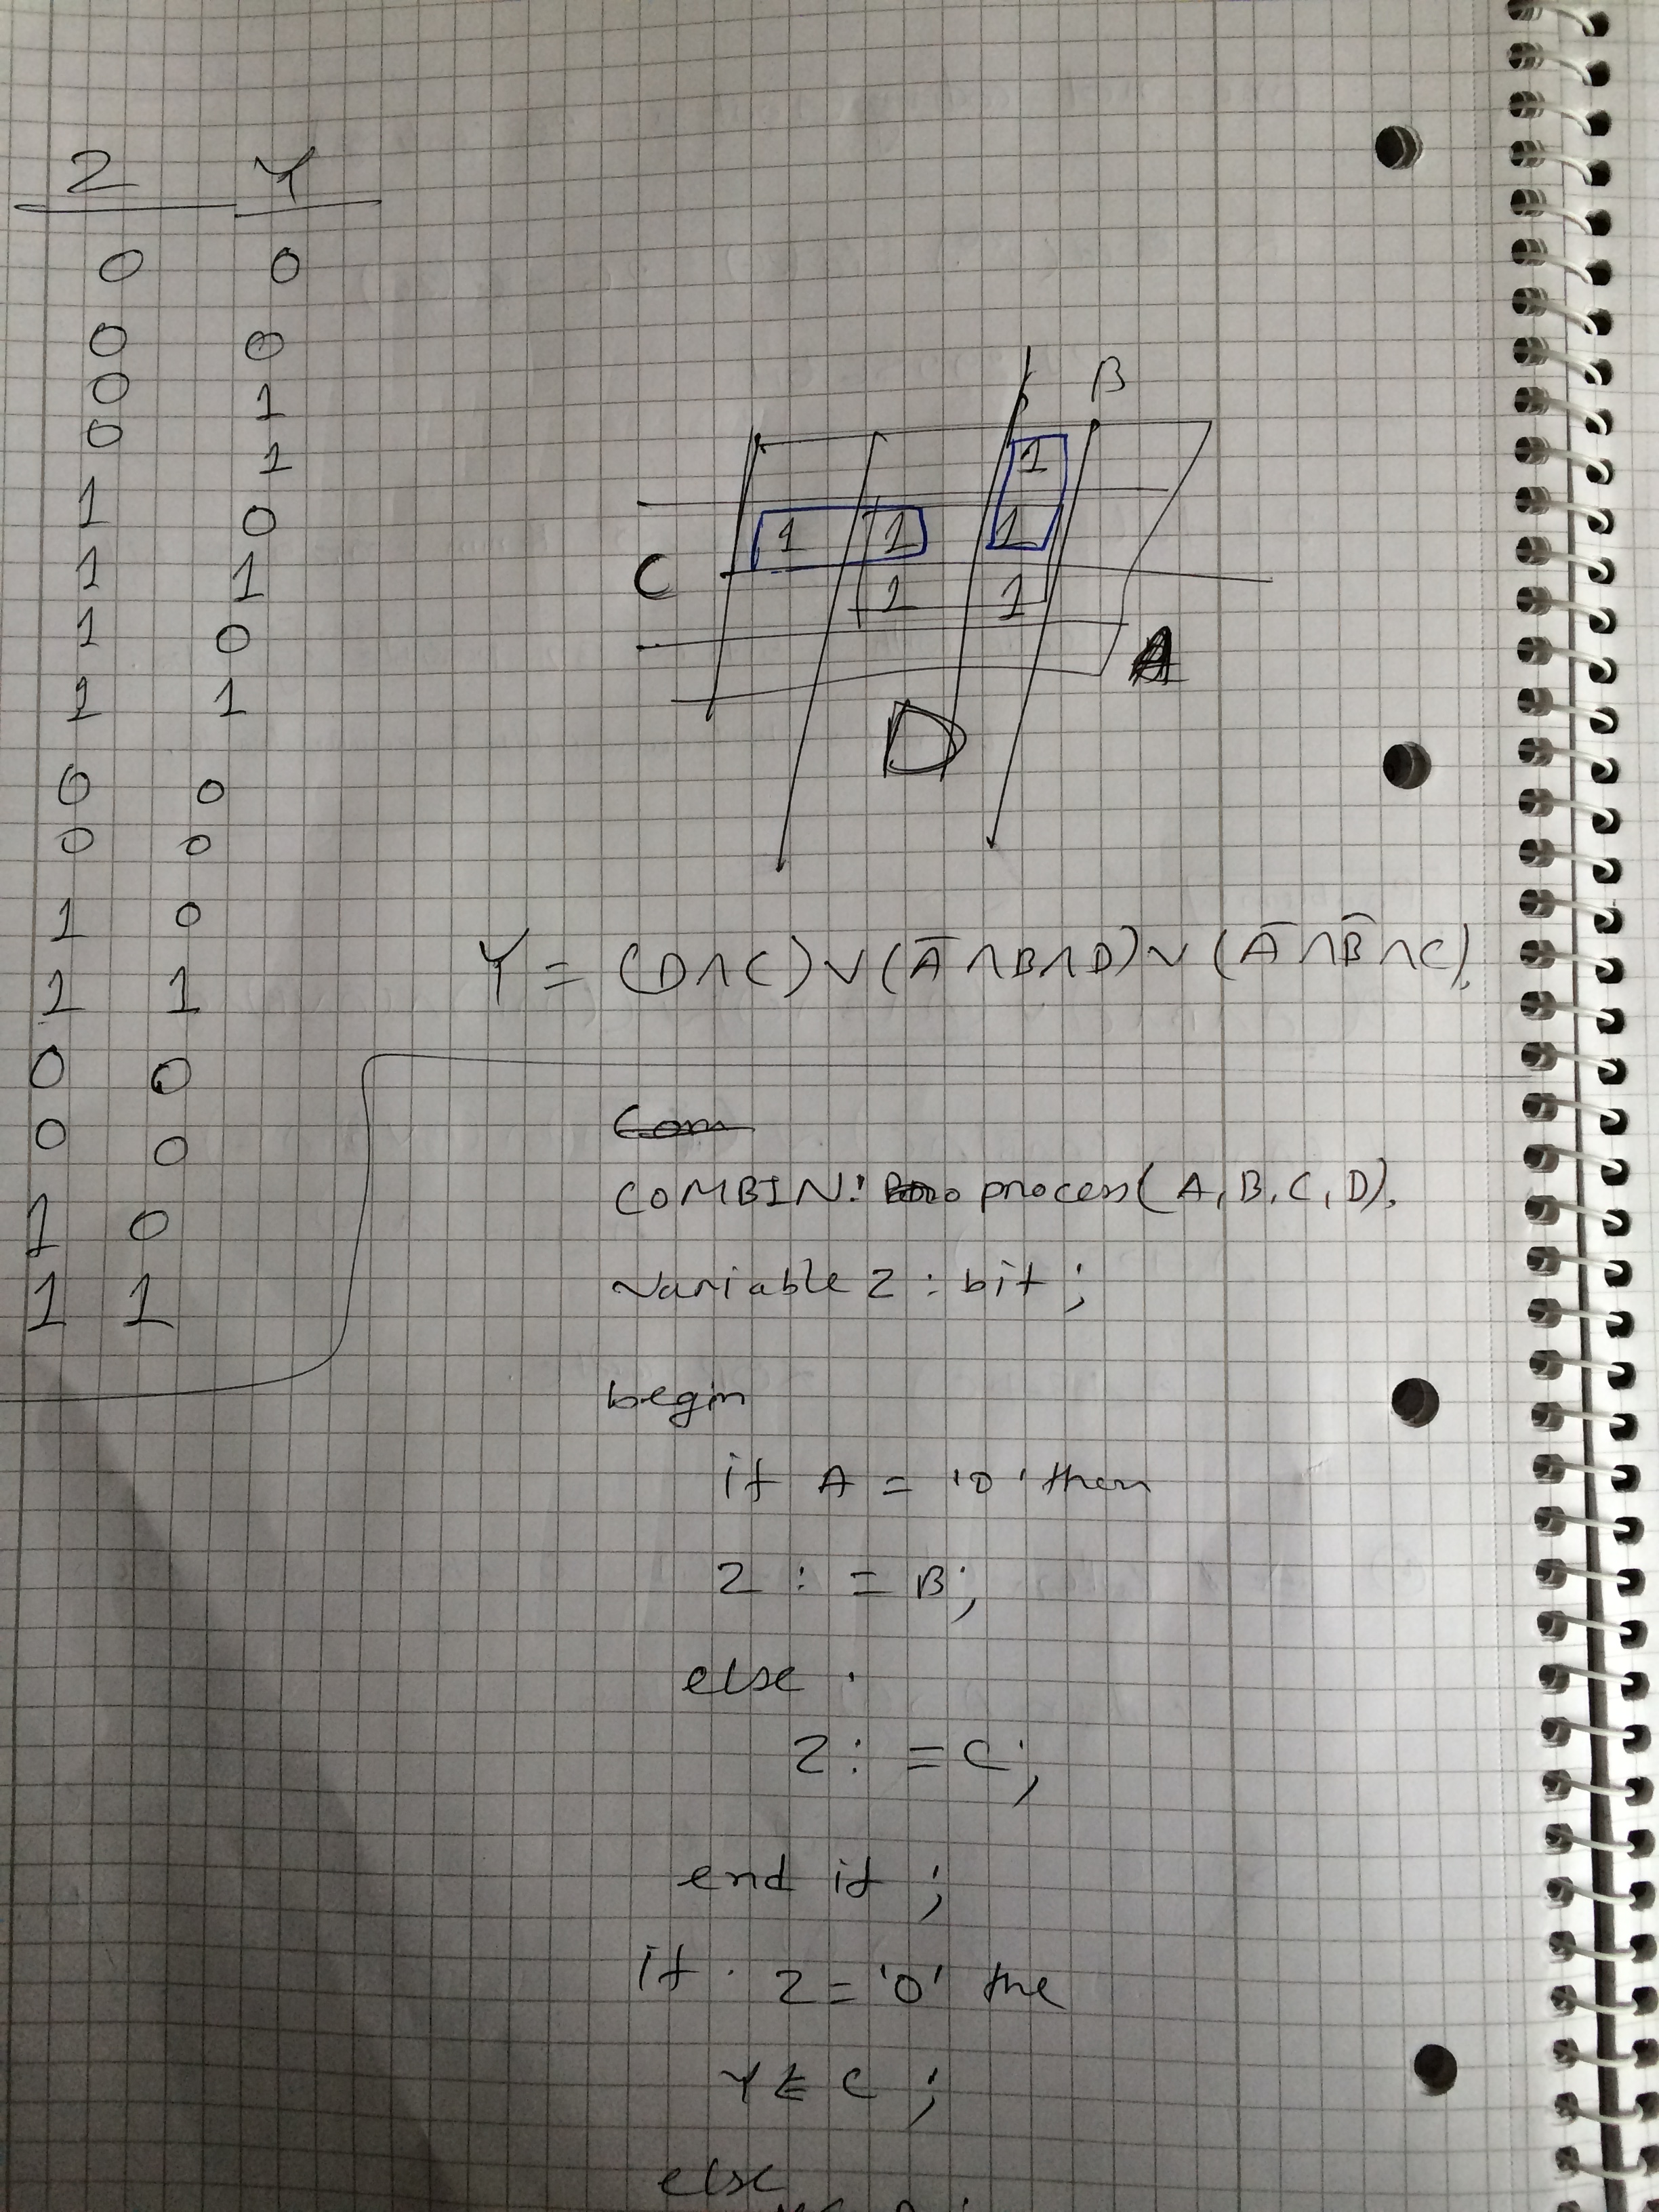 Z Y
0 0
0 0
0 1
0 1
1 0
1 1
1 0
1 1
0 0
0 0
1 0
1 1
0 0
0 0
1 0
1 1
B
1
1 1 1
C
1 1
A
D
Y = (D∧C)∨(A̅∧B∧D)∨(A̅∧B̅∧C),
Com
COMBIN: process(A,B,C,D),
Variable Z : bit ;
begin
if A = '0' then
Z : = B;
else
Z : = C;
end if ;
if Z = '0' the
Y <= C ;
else